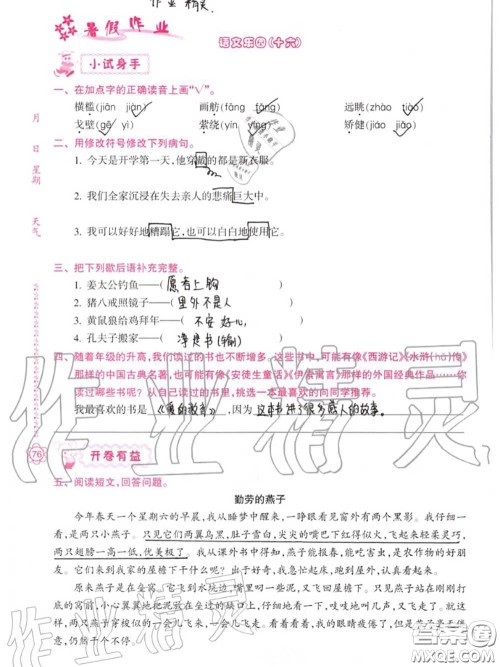 作业精灵
暑假作业
语文乐园(十六)
小试身手
一、在加点字的正确读音上画“√”。
横槛(jiān jiàn) 画舫(fāng fǎng) 远眺(zhào tiào)
戈壁(gē yì) 萦绕(yīn yíng) 矫健(jiǎo jiāo)
月 日 星期 天气
二、用修改符号修改下列病句。
1. 今天是开学第一天,他穿戴的都是新衣服。
2. 我们全家沉浸在失去亲人的悲痛巨大中。
3. 我可以好好地糟蹋它,也可以白白地使用它。
三、把下列歇后语补充完整。
1. 姜太公钓鱼——( 愿者上钩 )
2. 猪八戒照镜子——( 里外不是人 )
3. 黄鼠狼给鸡拜年——( 不安好心 )
4. 孔夫子搬家——( 净是书(输) )
四、随着年级的升高,我们读过的书也不断增多。这些书中,可能有像《西游记》《水浒(hǔ)传》
那样的中国古典名著,也可能有像《安徒生童话》《伊索寓言》那样的外国经典作品……你
读过哪些书呢?从自己读过的书里,挑选一本最喜欢的向同学推荐。
我最喜欢的书是 《爱的教育》 ,因为 这本书讲了很多感人的故事。
76
开卷有益
五、阅读短文,回答问题。
勤劳的燕子
今年春天一个星期六的早晨,我从睡梦中醒来,一睁眼看见窗外有两个黑影。我仔细一
看,是两只燕子。只见它们两翼乌黑,肚子雪白,尖尖的嘴巴下红得似火,飞起来轻柔灵巧,
两只翅膀一高一低,优美极了。我从课外书中得知,燕子能报春,能吃害虫,是农作物的好朋
友。它们来干什么呢?出于好奇,我急忙起床,跑到屋外仔细观察。
原来燕子是在垒窝,它飞到水坑边,嘴里叼一些泥,又飞回屋檐下。只见燕子站在刚刚打
成的窝前,小心翼翼地把泥放在垒过的缺口上,细细地看一下,吱吱地叫几声,又飞走了。两
只燕子穿梭似的一会儿飞来,一会儿飞去。我看着看着,我的眼睛疲倦了,但是燕子毫不倦怠,
仍然干个不停。
作业精灵
答案圈
MXQE.COM